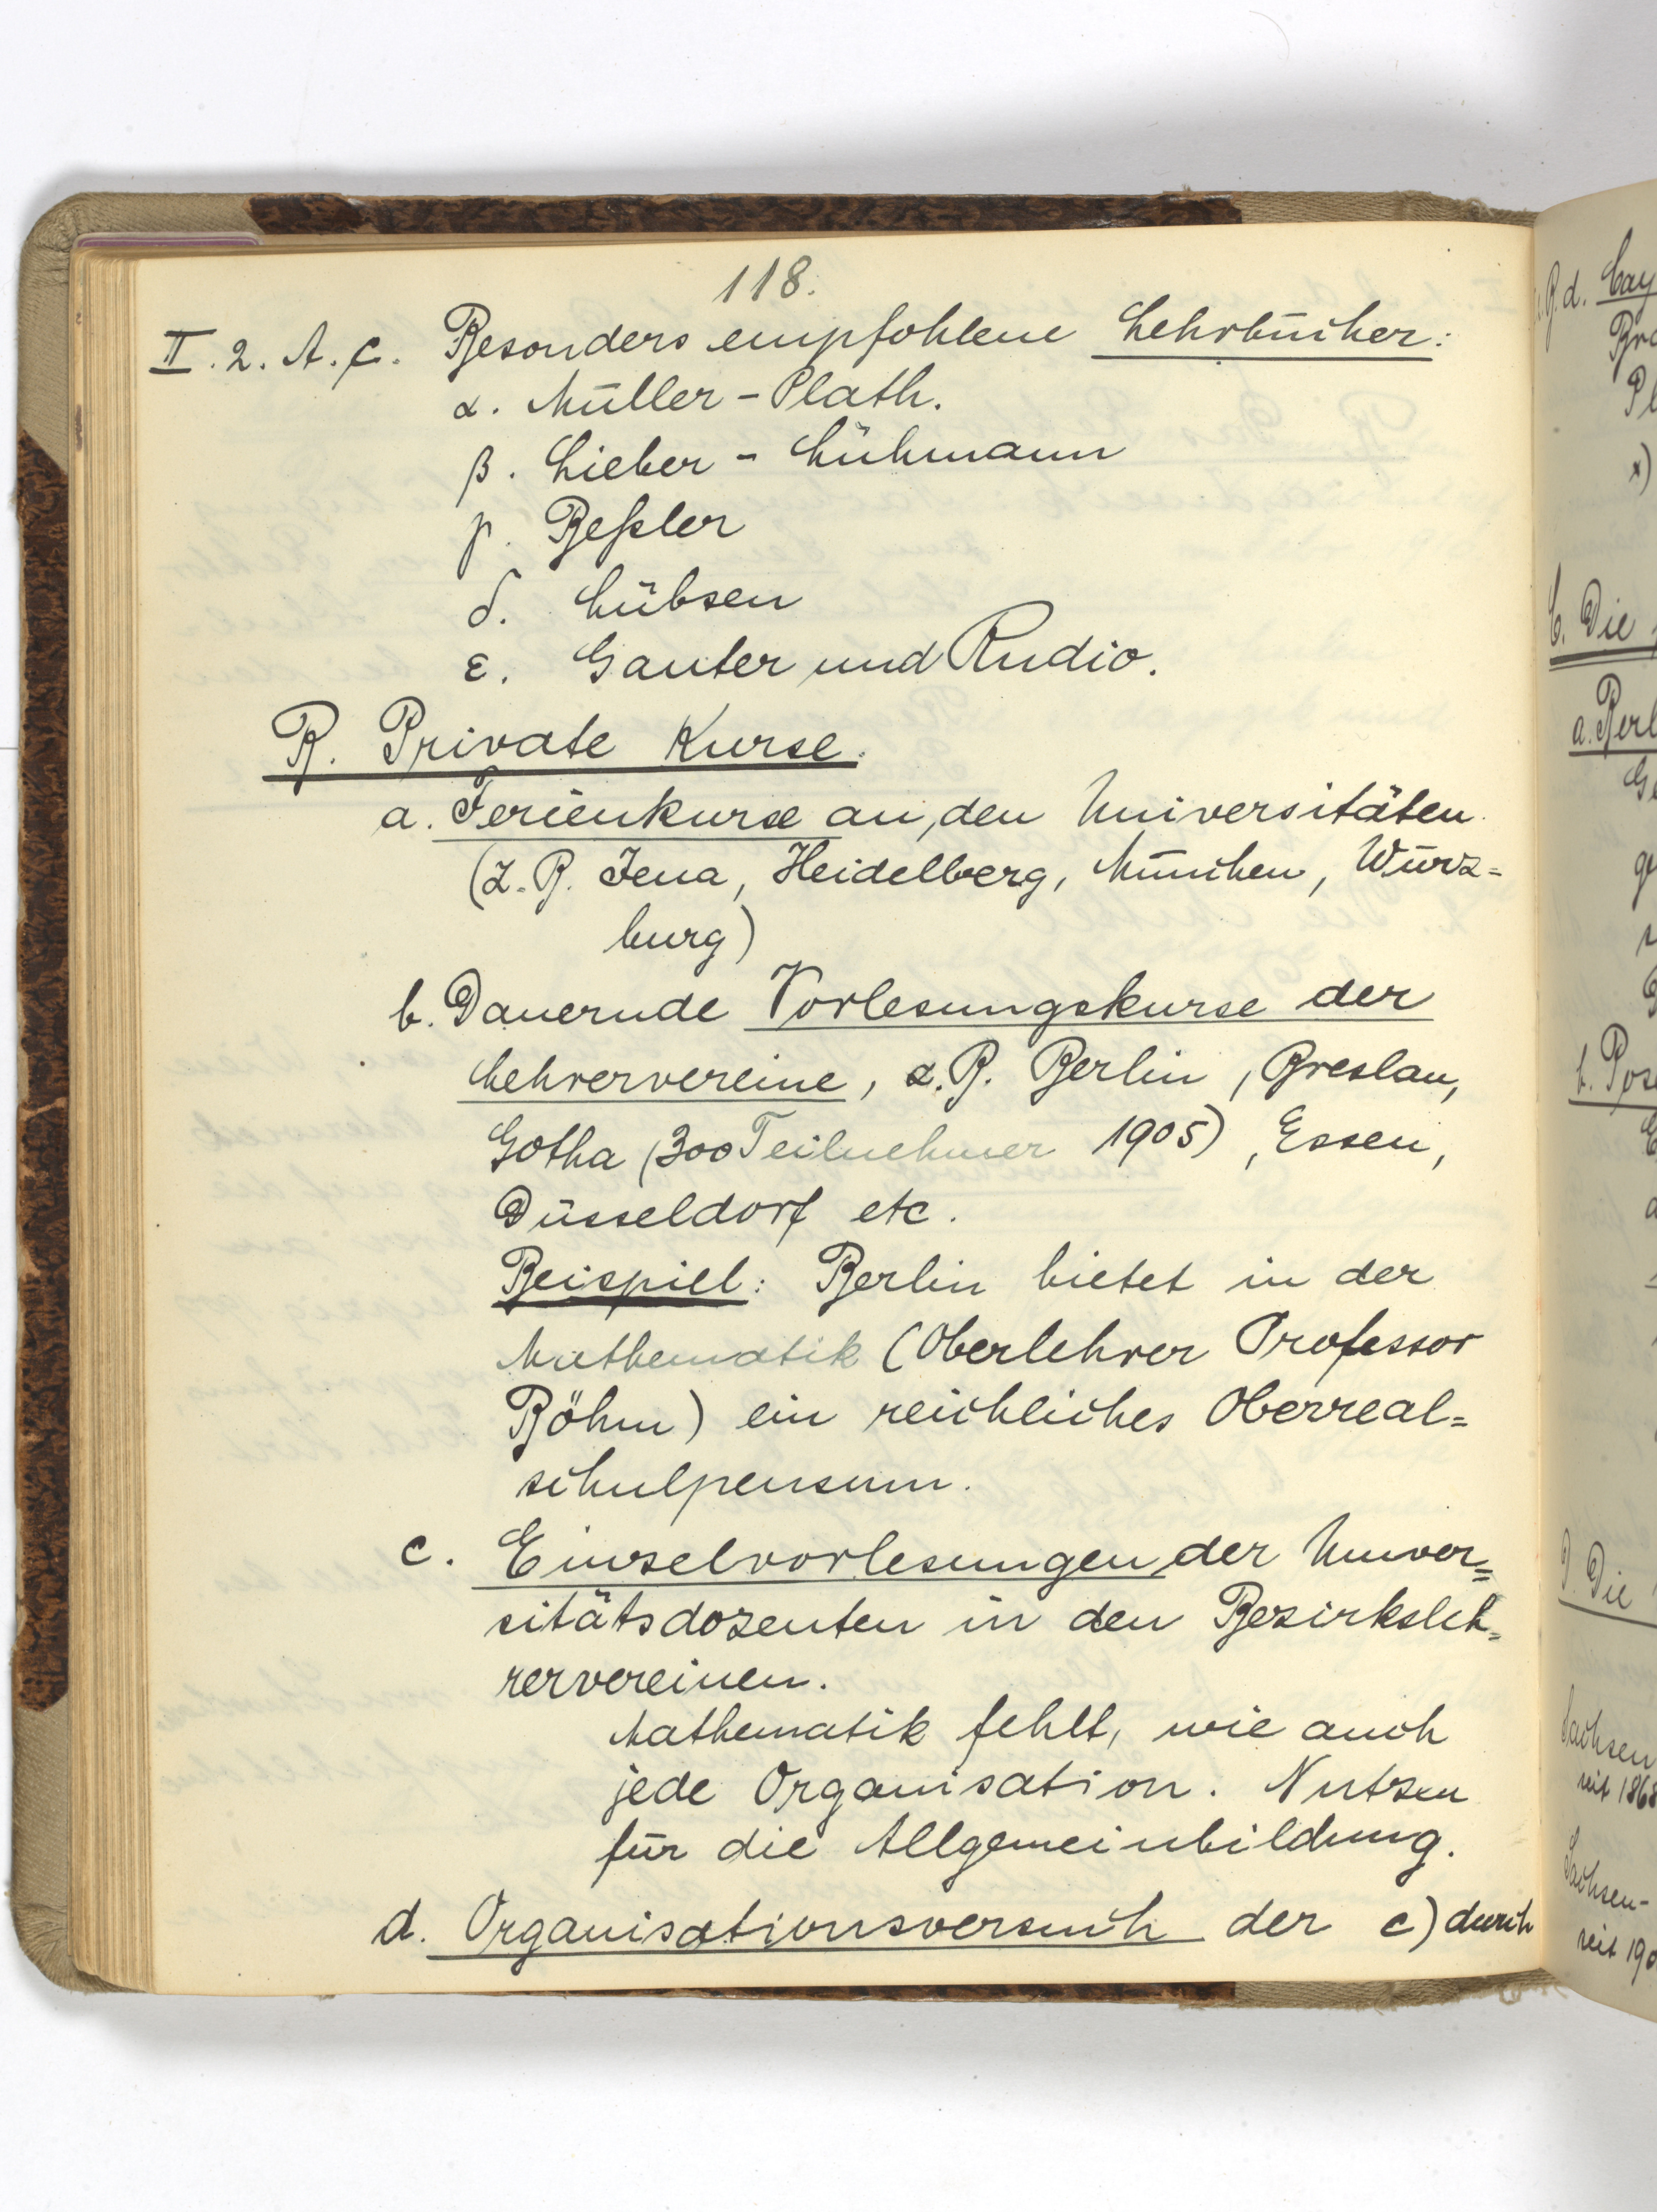 118.
II. 2. A. c. Besonders empfohlene Lehrbücher:
α. Müller-Plath.
β. Lieber - Lühmann
γ. Beßler
δ. Lübsen
ε. Ganter und Rudio.
B. Private Kurse.
a. Ferienkurse an den Universitäten
(z. B. Jena, Heidelberg, München, Würz=
burg)
b. Dauernde Vorlesungskurse der
Lehrervereine, z. B. Berlin, Breslau,
Gotha (300 Teilnehmer 1905), Essen,
Düsseldorf etc.
Beispiel: Berlin bietet in der
Mathematik (Oberlehrer Professor
Böhm) ein reichliches Oberreal=
schulpensum.
c. Einzelvorlesungen der Univer=
sitätsdozenten in den Bezirksleh=
rervereinen.
Mathematik fehlt, wie auch
jede Organisation. Nutzen
für die Allgemeinbildung.
d. Organisationsversuch der c) durch
B. d. Bay
Bra
Pl
x)
C. Die
a. Berl
Ge
b. Pose
D. Die
Sachsen
seit 1868
Sachsen-
seit 190